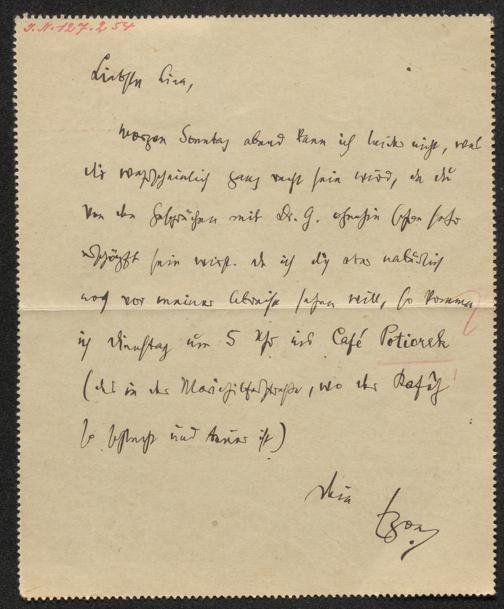 I.N. 127.254
Liebste Lina,
morgen Sonntag abend kann ich leider nicht, was
dir wahrscheinlich ganz recht sein wird, da du
von den Gesprächen mit Dr. G. ohnehin schon sehr
erschöpft sein wirst. da ich dich aber natürlich
noch vor meiner Abreise sehen will, so komme
ich dienstag um 5 Uhr ins Café Potiorek
(das in der Mariahilferstraße, wo der Kaffee
so schlecht und teuer ist)
dein
Egon